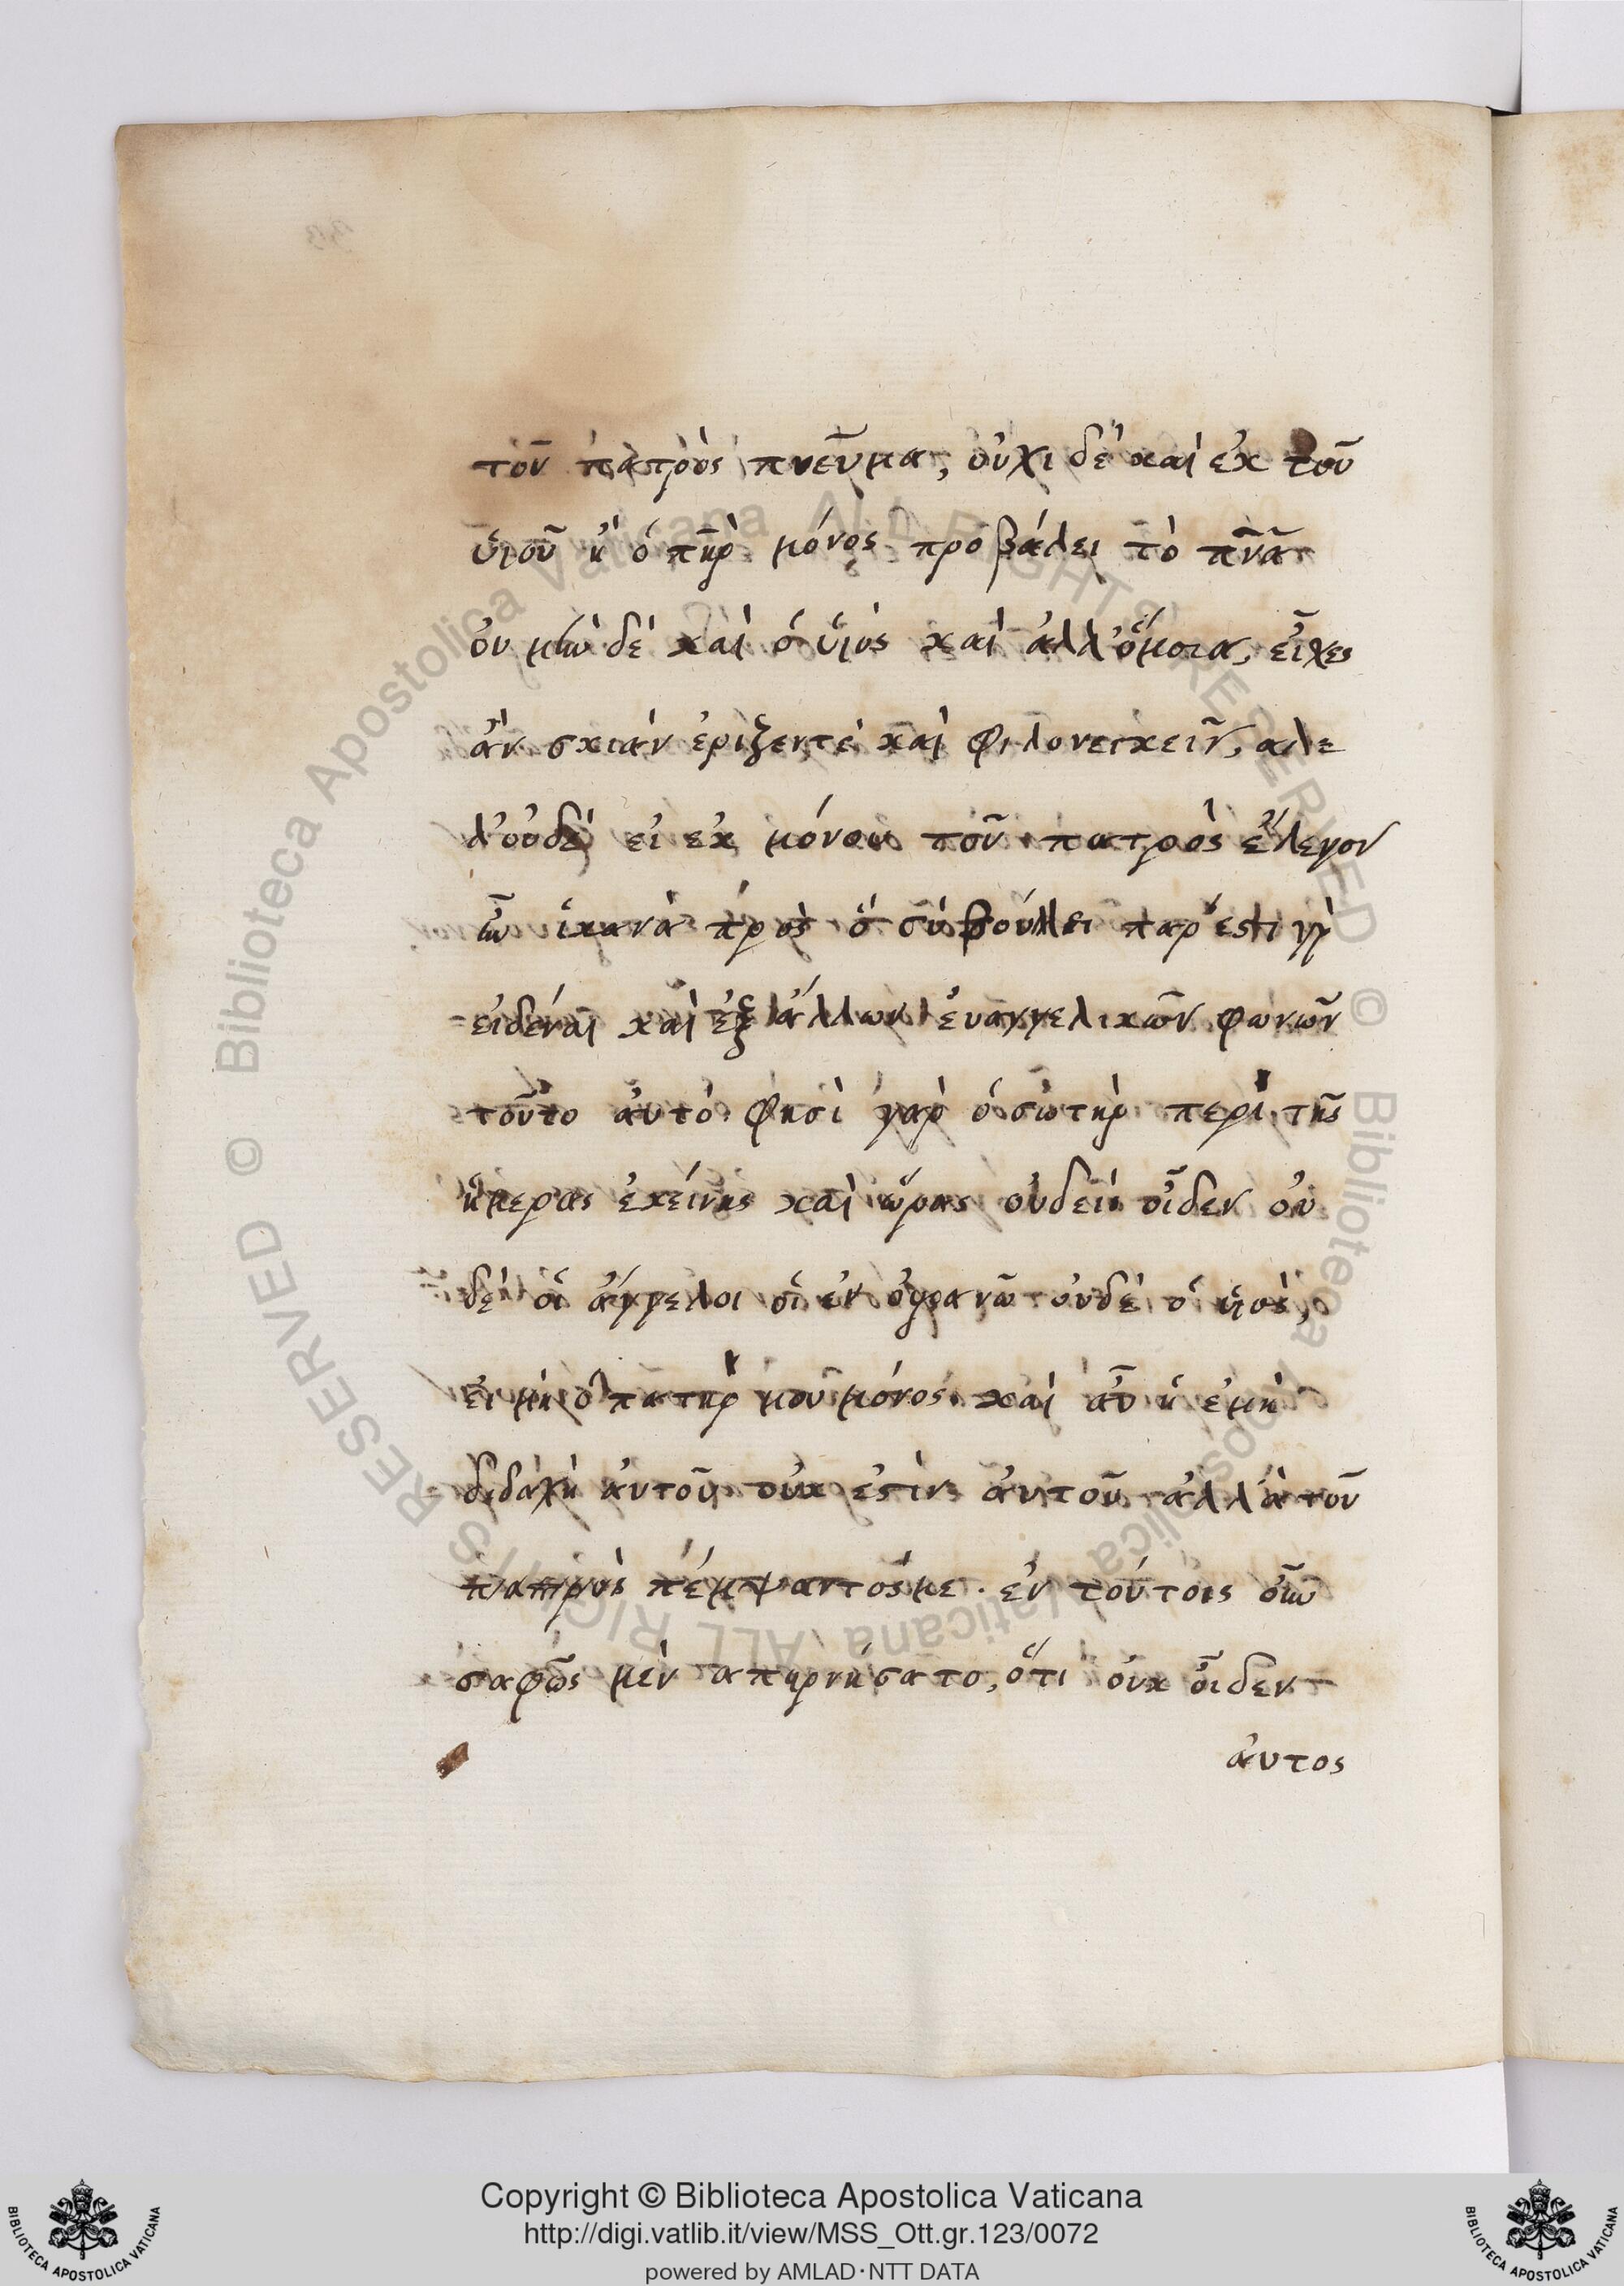 τοῦ πατρὸς πνεῦμα, οὐχι δὲ καὶ ἐκ τοῦ
ὑιοῦ ἢ ὁ πὴρ μόνος προβάλει τὸ πνᾶ
ὀυ μὴν δὲ καὶ ὁ ὑιὸς καὶ ἀλλ' ὅμοια, εἶχες
ἂν σκιὰν ἐρίζειν τὲ καὶ φιλονεικεῖν, αλε
λ' οὐδὲ εἰ ἐκ μόνου τοῦ πατρὸς ἔλεγον
ἦν ἱκανὰ πρὸς ὅ σὺ βούλλει παρ' ἔστι γὰρ
εἰδέναι καὶ ἐξ ἄλλων ἐυαγγελικῶν φωνῶν
τοῦτο ἀυτό. φησὶ γὰρ ὁ σωτὴρ περὶ τῆς
ἡμερας ἐκείνης καὶ ὥρας οὐδεὶς οἶδεν ὀυ
δὲ οἱ ἄγγελοι οἱ ἐν οὐρανῶ ὀυδὲ ὁ ὑιὸς,
ἐι μὴ ὁ πατὴρ μου μόνος. καὶ ἀῦ ἡ ἐμὴ
διδαχὴ ἀυτοῦ οὐκ ἐστὶν ἀυτοῦ ἀλλὰ τοῦ
πατρὸς πέμψαντός με. ἐν τούτοις οὖν
σαφῶς μὲν απηρνήσατο, ὅτι οὐκ οἶδεν
ἀυτος
Copyright © Biblioteca Apostolica Vaticana
http://digi.vatlib.it/view/MSS_Ott.gr.123/0072
powered by AMLAD·NTT DATA
BIBLIOTECA APOSTOLICA VATICANA
BIBLIOTECA APOSTOLICA VATICANA
© Biblioteca Apostolica Vaticana ALL RIGHTS RESERVED © Biblioteca Apostolica Vaticana ALL RIGHTS RESERVED